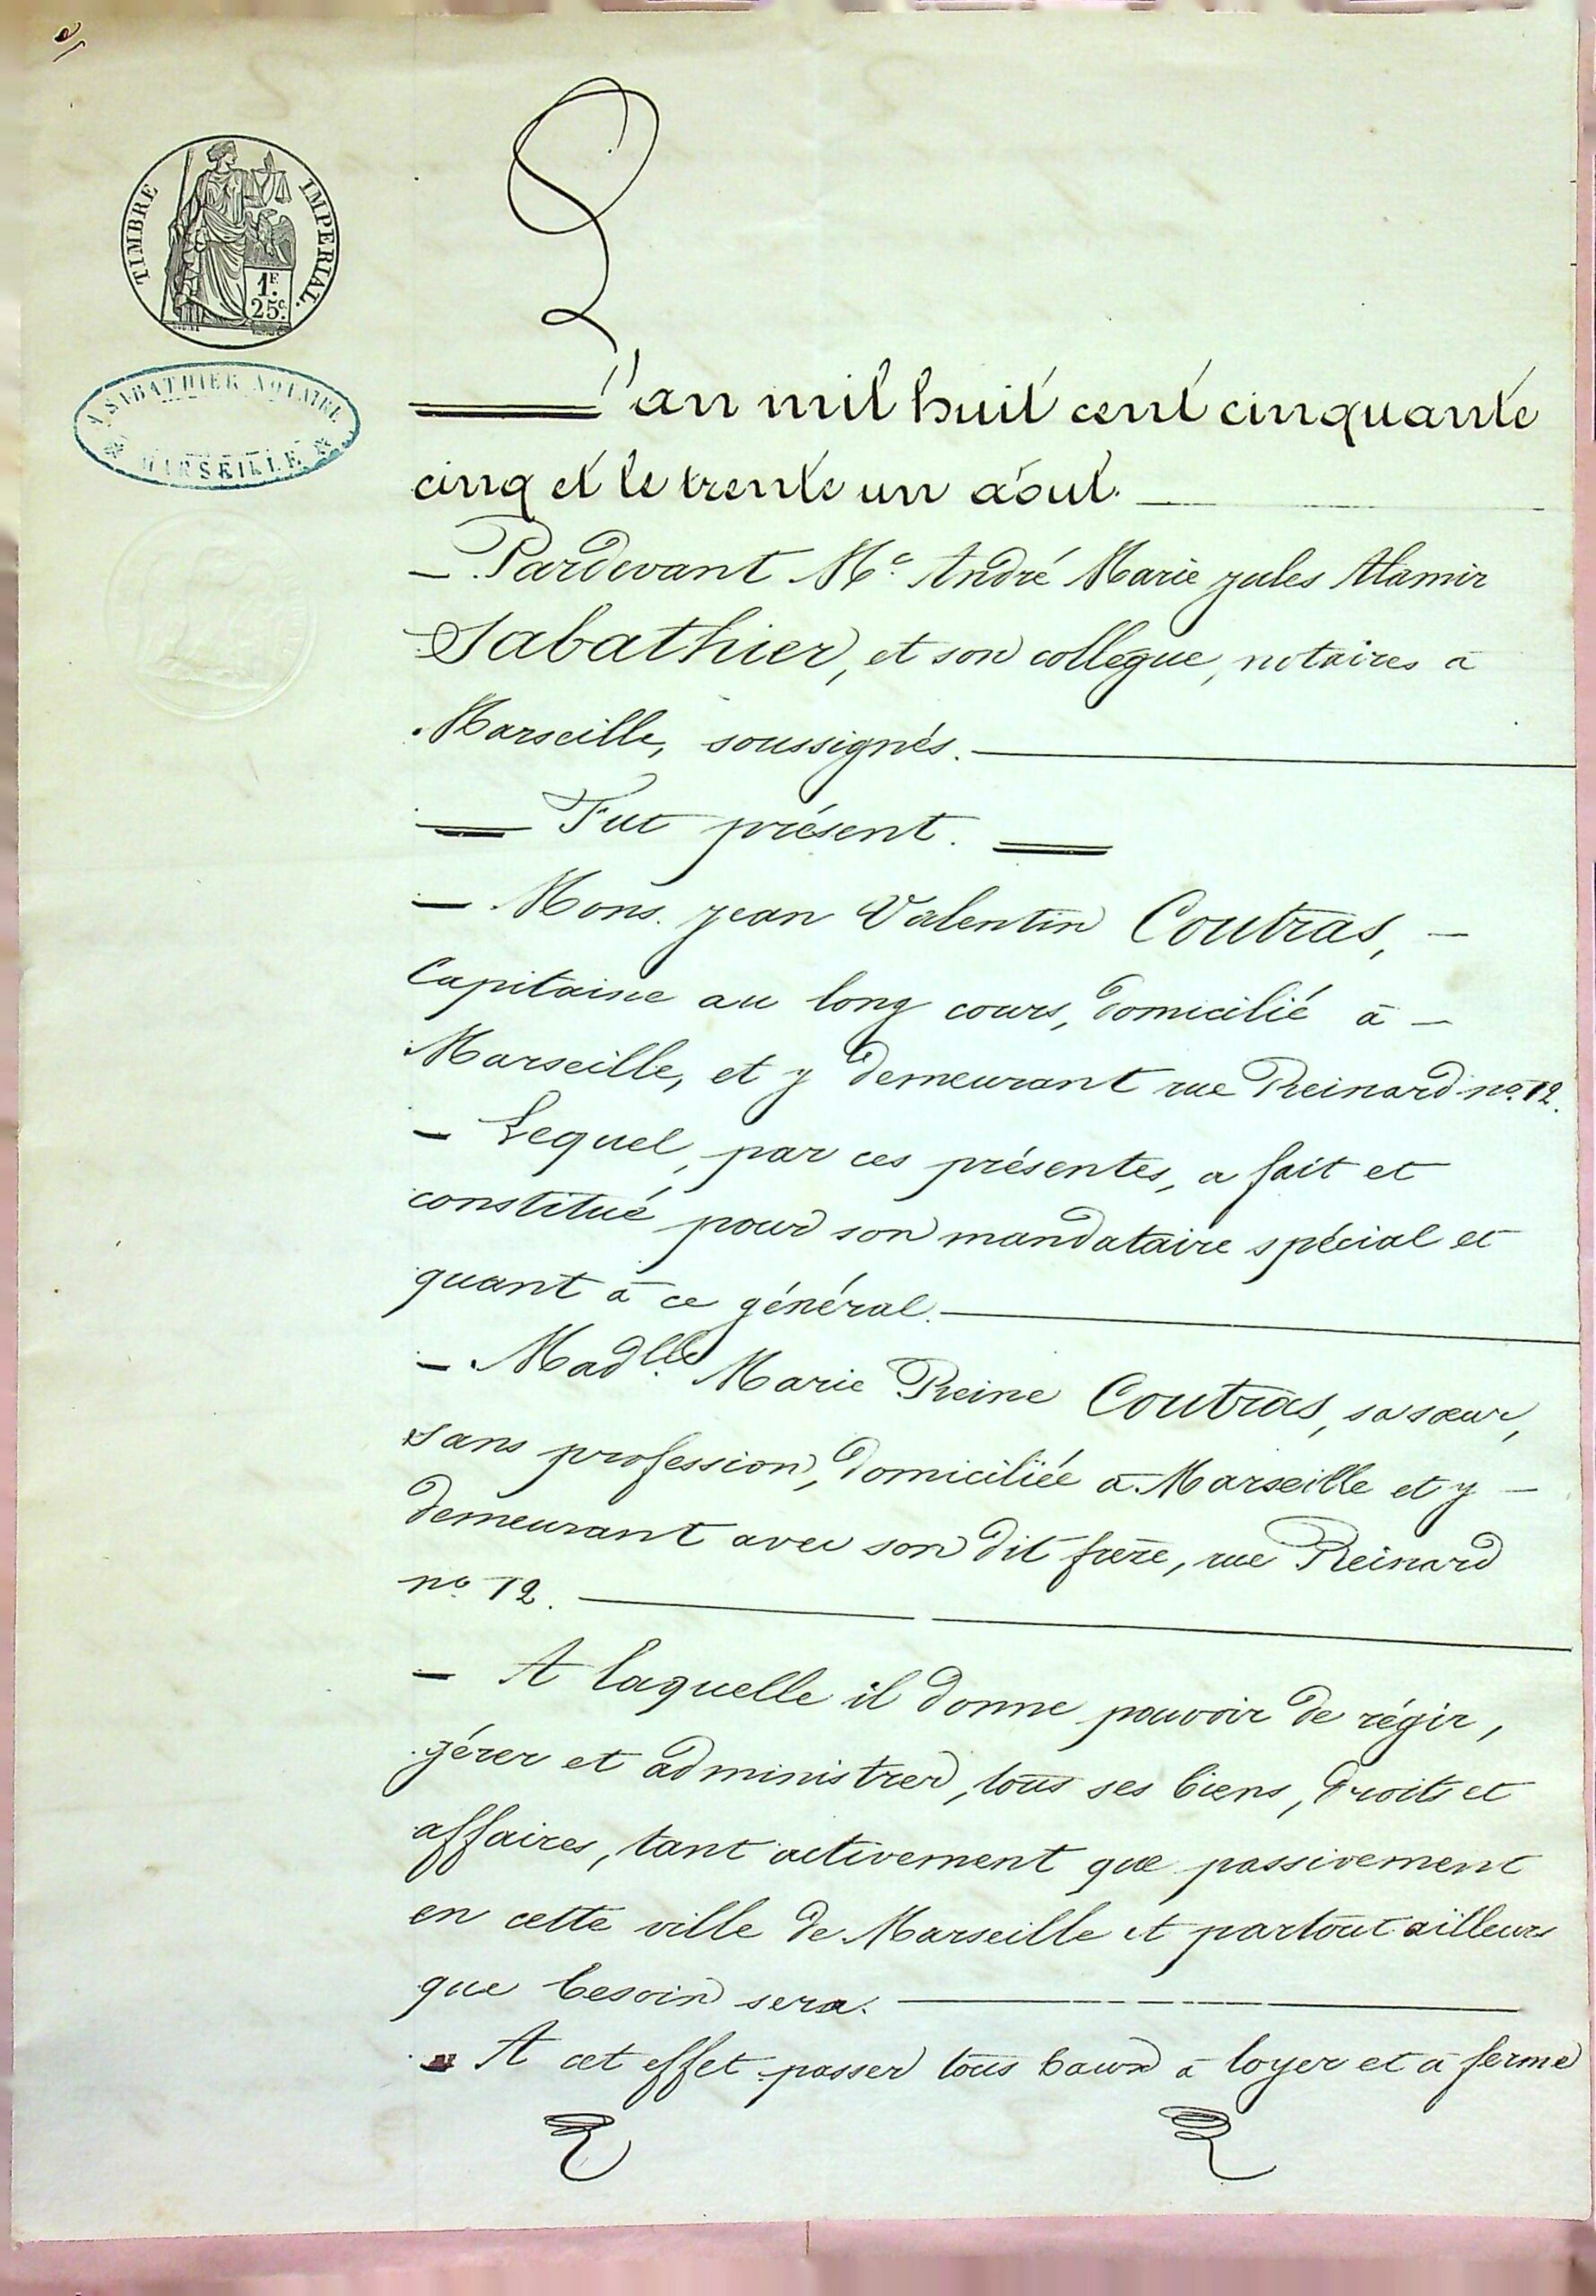 TIMBRE IMPERIAL.
1F.
25c.
A SABATHIER NOTAIRE
MARSEILLE
L'an mil huit cent cinquante
cinq et le trente un août.
— Pardevant Me. André Marie jules Alamir
Sabathier, et son collegue, notaires à
Marseille, soussignés.
— Fut présent. —
— Mons. jean Valentin Coutras, —
Capitaine au long cours, domicilié à —
Marseille, et y demeurant rue Reinard no. 12.
— Lequel, par ces présentes, a fait et
constitué pour son mandataire spécial et
quant à ce général.
— Madlle. Marie Reine Coutras, sa sœur,
sans profession, domiciliée à Marseille et y —
demeurant avec son dit frère, rue Reinard
no. 12.
— A laquelle il donne pouvoir de régir,
gérer et administrer, tous ses biens, droits et
affaires, tant activement que passivement
en cette ville de Marseille et partout ailleurs
que besoin sera.
— A cet effet passer tous baux à loyer et à ferme